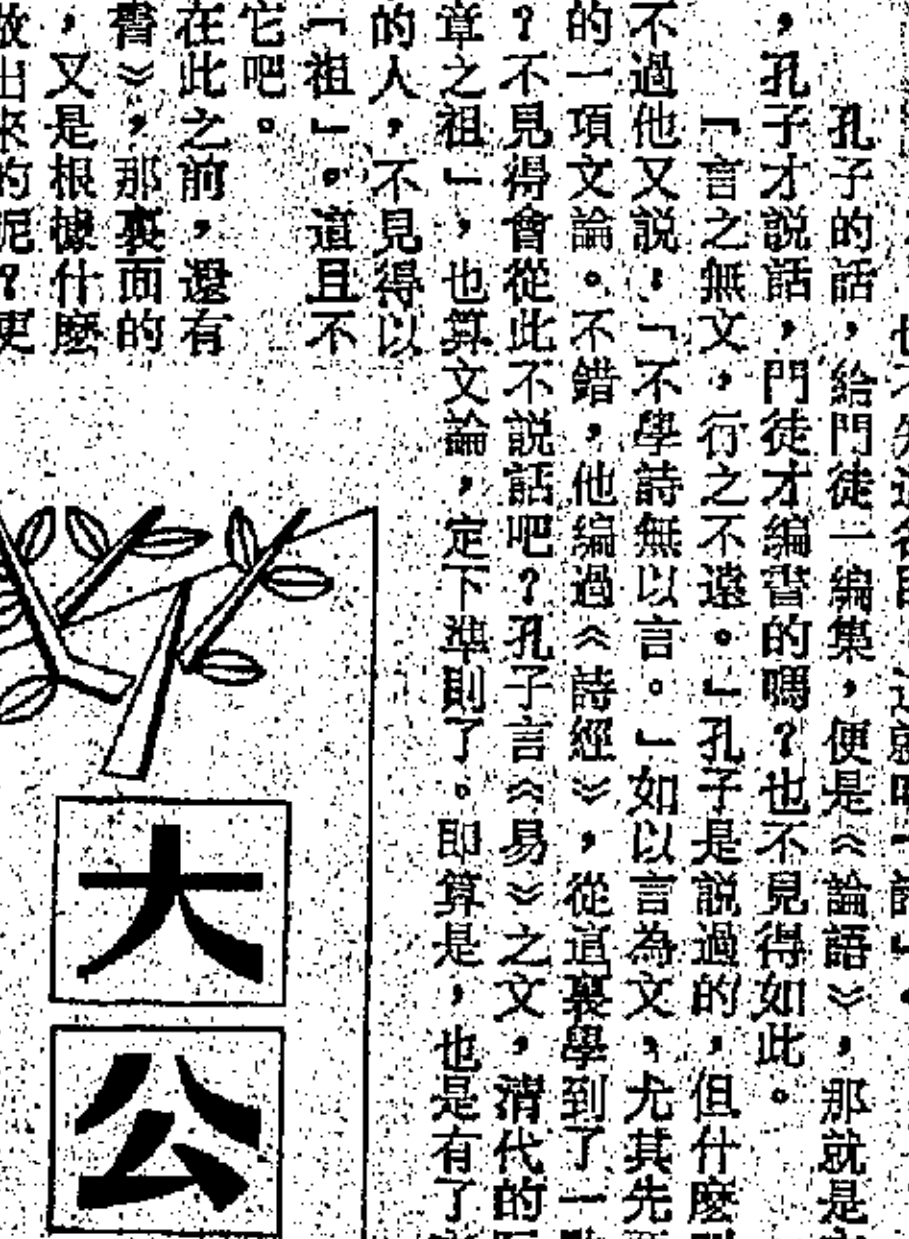 也不
孔子的話，給門徒一編集，便是《論語》，那就是
，孔子才説話，門徒才編書的嗎？也不見得如此。
「言之無文，行之不遠。」孔子是説過的，但什麽
不過他又説，「不學詩無以言。」如以言為文、尤其先
的一項文論。不錯，他編過《詩經》，從這裏學到了一
？不見得會從此不説話吧？孔子言《易》之文，清代的
章之祖」，也算文論，定下準則了。即算是，也是有了
的人，不見得以
「祖」。這且不
它吧。
在此之前，還有
書》，那裏面的
，又是根據什麽
出來的呢？更
大
公